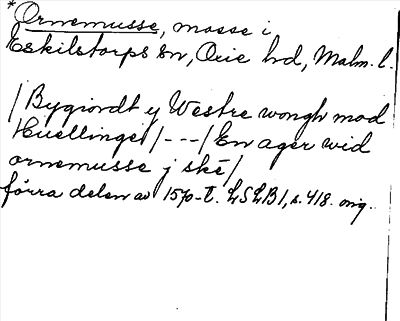 *Ornemusse, mosse i
Eskilstorps sn, Oxie hd, Malm. l.
/Bygiordt y Westre wongh mod
Huellinge/---/En ager wid
ornemusse j skě/
förra delen av 1570-t. LSLB1, s. 418. orig.